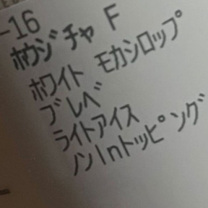 -16
ホウジチャ F
ホワイト モカシロップ
ブレベ
ライトアイス
ノンInトッピング